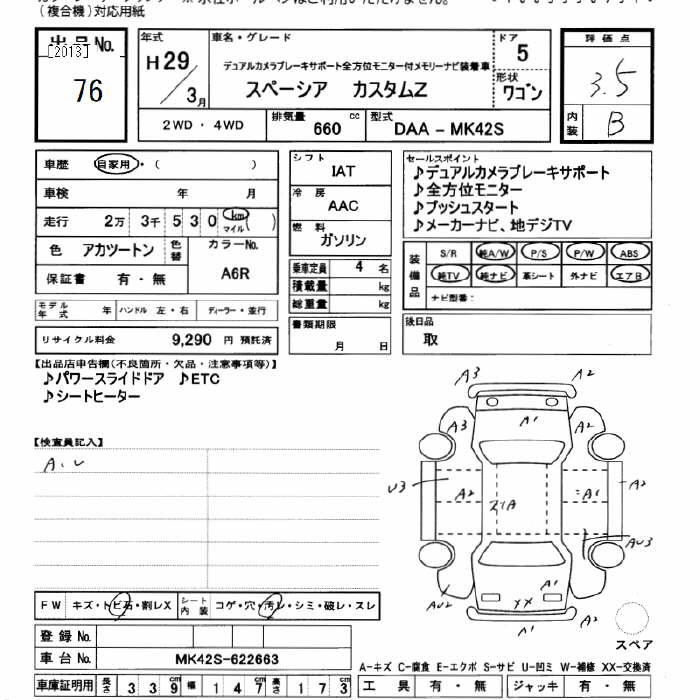 (複合機)対応用紙
出品No.
[2013]
76
年式
H29/3月
車名・グレード
デュアルカメラブレーキサポート全方位モニター付メモリーナビ装着車
スペーシア カスタムZ
ドア
5
形状
ワゴン
2WD・4WD
排気量
660 cc
型式
DAA-MK42S
評価点
3.5
内装
B
車歴 自家用・( )
車検 年 月
走行 2万 3千 530 km マイル ( )
色 アカツートン 色替
カラーNo.
A6R
保証書 有・無
モデル年式 年 ハンドル 左・右 ディーラー・並行
リサイクル料金 9,290 円 預託済
シフト
IAT
冷房
AAC
燃料
ガソリン
乗車定員 4 名
積載量 kg
総重量 kg
書類期限
月 日
セールスポイント
♪デュアルカメラブレーキサポート
♪全方位モニター
♪プッシュスタート
♪メーカーナビ、地デジTV
装備品
S/R 純A/W P/S P/W ABS
純TV 純ナビ 革シート 外ナビ エアB
ナビ型番:
後日品
取
【出品店申告欄(不良箇所・欠品・注意事項等)】
♪パワースライドドア ♪ETC
♪シートヒーター
【検査員記入】
A.U
A3
A2
A3
A1
A2
U3
A2
A1
A2
AU3
AU2
A1
XX
A1
A2
スペア
FW キズ・トビ石・割レX シート内装 コゲ・穴・汚レ・シミ・破レ・スレ
登録No.
車台No. MK42S-622663
A-キズ C-腐食 E-エクボ S-サビ U-凹ミ W-補修 XX-交換済
車庫証明用 長さ 339cm 幅 147cm 高さ 173cm
工具 有・無 ジャッキ 有・無